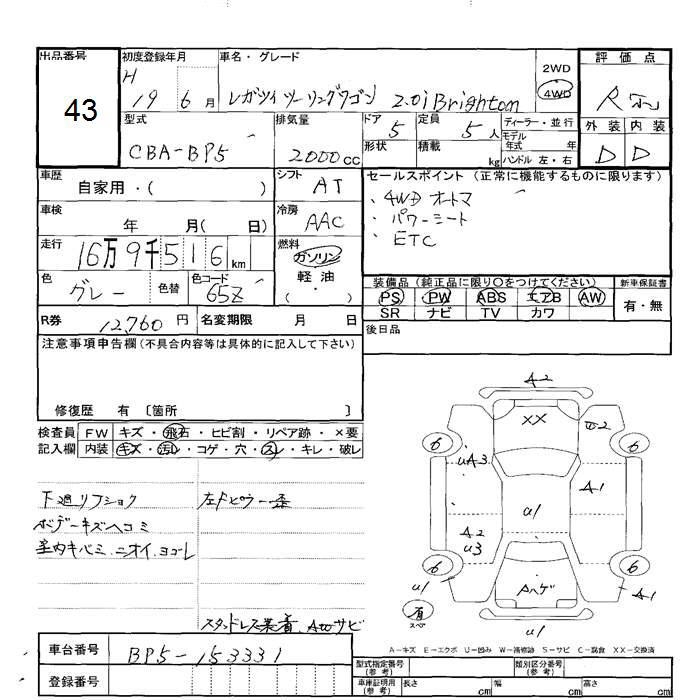 出品番号
43
初度登録年月
H 19 6 月
車名・グレード
レガツイ ツーリングワゴン 2.0i Brighton
2WD
4WD
評価点
R
外装 内装
D D
型式
CBA-BP5
排気量
2000 CC
ドア
5
定員
5 人
形状
積載
kg
ディーラー・並行
モデル年式 年
ハンドル 左・右
車歴
自家用・( )
シフト
AT
車検
年 月( 日)
冷房
AAC
走行
16万9千516 km
燃料
ガソリン
軽・油
( )
色
グレー
色替
色コード
65Z
R券
12,760 円
名変期限 月 日
セールスポイント (正常に機能するものに限ります)
・4WD オートマ
・パワーシート
・ETC
装備品 (純正品に限り○をつけてください)
新車保証書
PS PW ABS エアB AW
SR ナビ TV カワ
有・無
後日品
注意事項申告欄 (不具合内容等は具体的に記入して下さい)
修復歴 有 〔箇所 〕
検査員記入欄
FW キズ・飛石・ヒビ割・リペア跡・×要
内装 キズ・汚レ・コゲ・穴・スレ・キレ・破レ
下廻リフショク
ボデーキズヘコミ
室内キバミ、ニオイ、ヨゴレ
左Fピラー
スタッドレス装着、
サビ
A2
XX
6 6
UA3
A1
A2
U3
U1
6 6
Aハゲ
U1
A1
有
スペア
U1
A-キズ E-エクボ U-凹み W-補修跡 S-サビ C-腐食 XX-交換済
車台番号
BP5-153331
登録番号
型式指定番号 (参考)
類別区分番号 (参考)
車庫証明用 (参考)
長さ cm 幅 cm 高さ cm